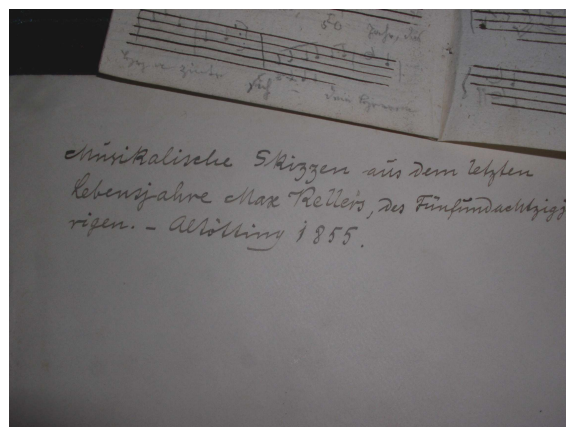 Jahr, die
Musikalische Skizzen aus dem letzten
Lebensjahre Max Keller's, des Fünfundachtzigj
rigen. – Altötting 1855.